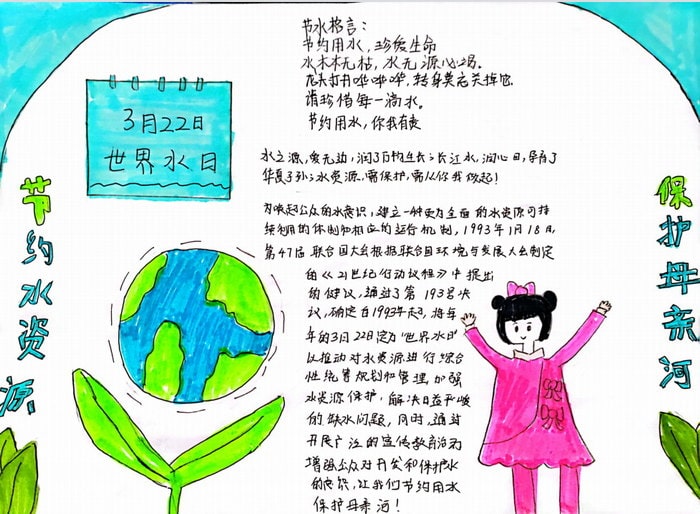 节水格言：
节约用水，珍爱生命
水木无枯，水无源必竭。
龙头打开哗哗哗，转身莫忘关掉它
请珍惜每一滴水。
节约用水，你我有责
3月22日
世界水日
水之源，爱无边，润了万物生长；长江水，润心田，孕育了
华夏子孙；水资源，需保护，需从你我做起！
为唤起公众的水意识，建立一种更为全面的水资源可持
续利用的体制和相应的运行机制，1993年1月18日，
第47届联合国大会根据联合国环境与发展大会制定
的《21世纪行动议程》中提出
的建议，通过了第193号决
议，确定自1993年起，将每
年的3月22日定为“世界水日”
以推动对水资源进行综合
性统筹规划和管理，加强
水资源保护，解决日益严峻
的缺水问题，同时，通过
开展广泛的宣传教育活
增强公众对开发和保护水
的意识，让我们节约用水
保护母亲河！
节约水资源
保护母亲河